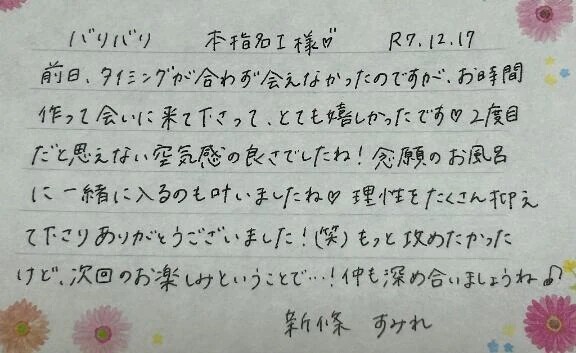 バリバリ 本指名I様♡ R7.12.17
前日、タイミングが合わず会えなかったのですが、お時間
作って会いに来て下さって、とても嬉しかったです♡2度目
だと思えない空気感の良さでしたね！念願のお風呂
に一緒に入るのも叶いましたね♡理性をたくさん抑え
て下さりありがとうございました！(笑)もっと攻めたかった
けど、次回のお楽しみということで…！仲も深め合いましょうね♪
新條 すみれ